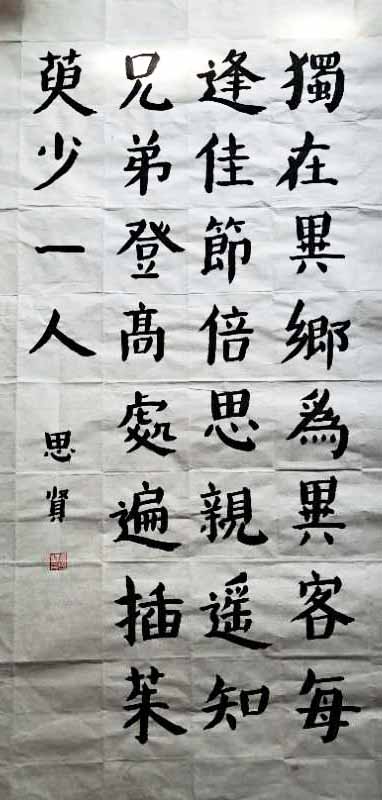 獨在異鄉爲異客每
逢佳節倍思親遥知
兄弟登髙處遍插茱
萸少一人
思賢